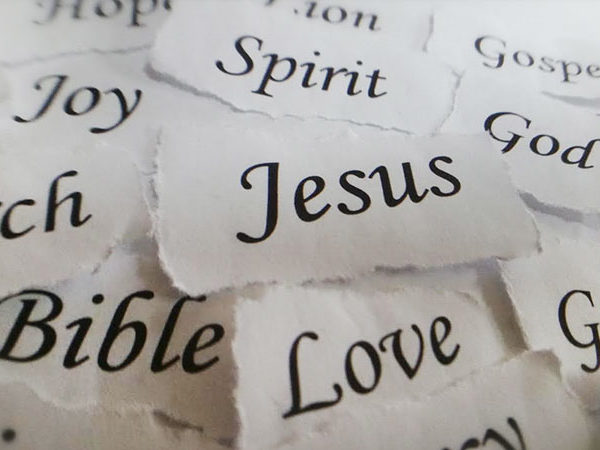 Hope
Spirit
Gospe
Joy
God
Jesus
ch
Bible
Love
G